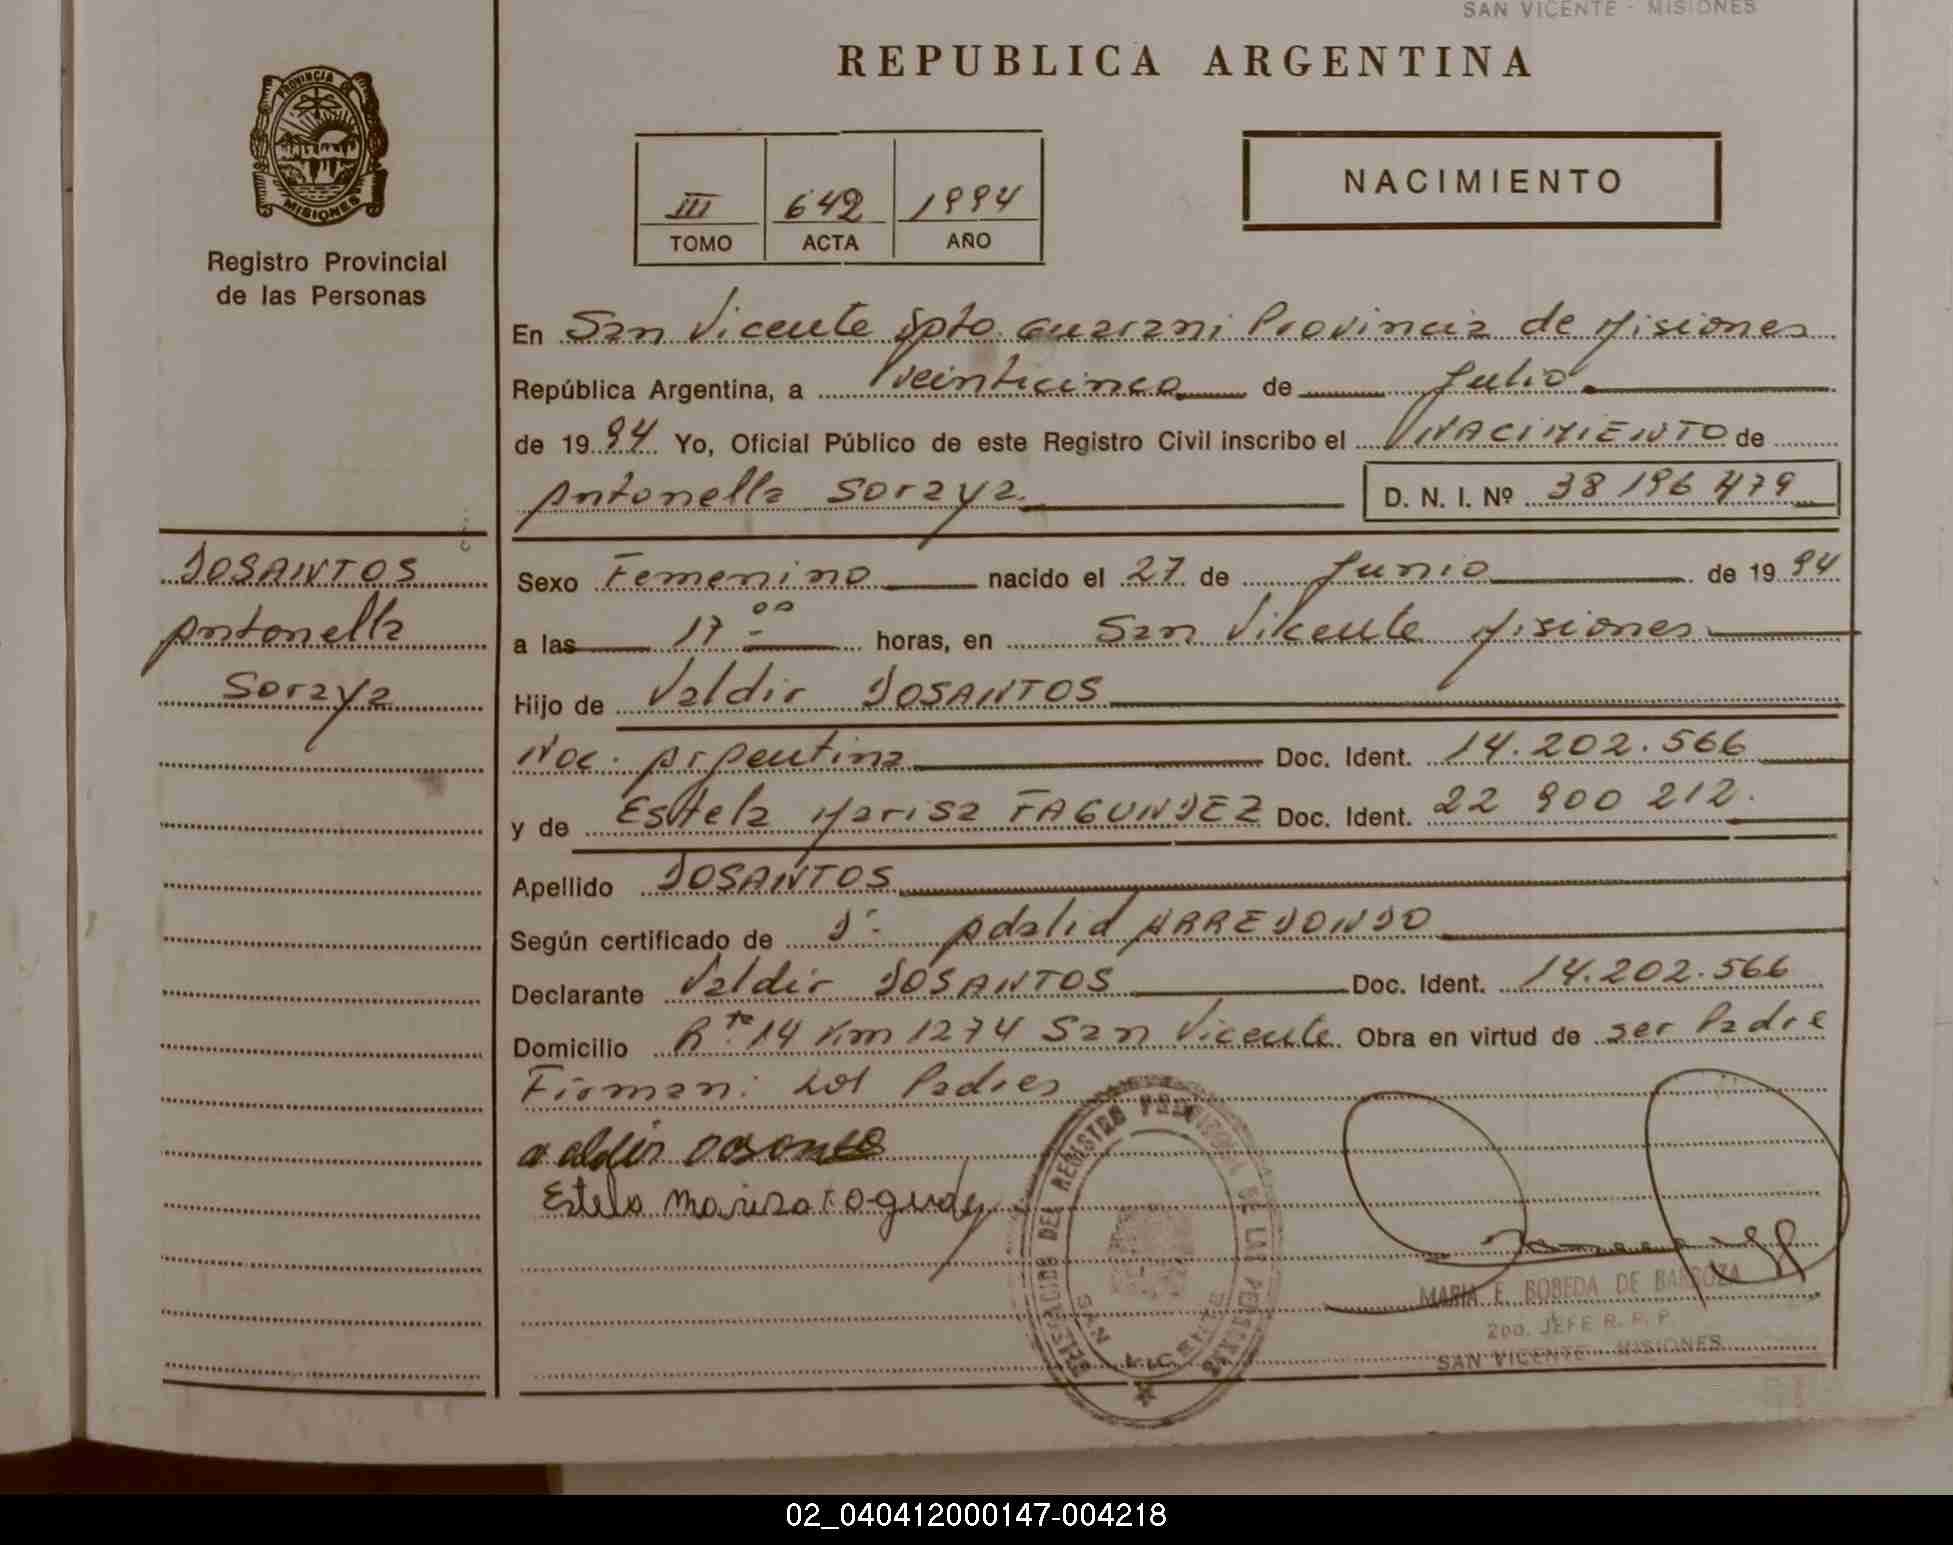 SAN VICENTE - MISIONES
REPUBLICA ARGENTINA
PROVINCIA DE
MISIONES
Registro Provincial
de las Personas
III 642 1994
TOMO ACTA AÑO
NACIMIENTO
En San Vicente Dpto. Guarani Provincia de Misiones
República Argentina, a veinticinco de Julio
de 1994 Yo, Oficial Público de este Registro Civil inscribo el NACIMIENTO de
Antonella Soraya. D. N. I. Nº 38 196 479
DOSANTOS
Antonella
Soraya
Sexo Femenino nacido el 27 de Junio de 1994
a las 17 00 horas, en San Vicente Misiones
Hijo de Valdir DOSANTOS
Nac. Argentina Doc. Ident. 14.202.566
y de Estela Marisa FAGUNDEZ Doc. Ident. 22 900 212.
Apellido DOSANTOS
Según certificado de Dr. Adalid ARREDONDO
Declarante Valdir DOSANTOS Doc. Ident. 14.202.566
Domicilio Rta. 14 Km 1274 San Vicente. Obra en virtud de ser Padre
Firman: Los Padres
Estela Marisa
DEL REGISTRO PROVINCIAL DE LAS PERSONAS
SAN VICENTE
MARIA E. BOBEDA DE BARBOZA
2do. JEFE R. P. P.
SAN VICENTE - MISIONES
02_040412000147-004218